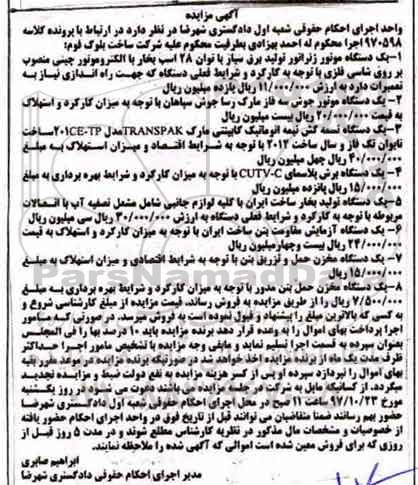 آگهی مزایده
واحد اجرای احکام حقوقی شعبه اول دادگستری شهرضا در نظر دارد در ارتباط با پرونده کلاسه
۹۷۰۵۹۸ اجرا محکوم له احمد بهزادی بطرفیت محکوم علیه شرکت ساخت بلوک فوم:
۱-یک دستگاه موتور ژنراتور تولید برق سیار با توان ۲۸ اسب بخار با الکتروموتور چینی منصوب
بر روی شاسی فلزی با توجه به کارکرد و شرایط فعلی دستگاه که جهت راه اندازی نیاز به
تعمیرات دارد به ارزش ۱۱/۰۰۰/۰۰۰ ریال یازده میلیون ریال
۲- یک دستگاه موتور جوش سه فاز مارک رسا جوش سپاهان با توجه به میزان کارکرد و استهلاک
به قیمت ۲۰/۰۰۰/۰۰۰ ریال بیست میلیون ریال
۳- یک دستگاه تسمه کش نیمه اتوماتیک کابینتی مارک TRANSPAK مدل 201CE-TP ساخت
تایوان تک فاز و سال ساخت ۲۰۱۲ با توجه به شرایط اقتصاد و میزان استهلاک به مبلغ
۴۰/۰۰۰/۰۰۰ ریال چهل میلیون ریال
۴- یک دستگاه برش پلاسمای CUTV-C با توجه به میزان کارکرد و شرایط بهره برداری به مبلغ
۱۵/۰۰۰/۰۰۰ ریال پانزده میلیون ریال
۵-یک دستگاه تولید بخار ساخت ایران با کلیه لوازم جانبی شامل مشعل تصفیه آب با اتصالات
مربوطه با توجه به کارکرد و شرایط فعلی دستگاه به ارزش ۳۰/۰۰۰/۰۰۰ ریال سی میلیون ریال
۶- یک دستگاه آزمایش مقاومت بتن ساخت ایران با توجه به میزان کارکرد و استهلاک به قیمت
۲۴/۰۰۰/۰۰۰ ریال بیست وچهارمیلیون ریال
۷- یک دستگاه مخزن حمل و تزریق بتن با توجه به شرایط اقتصادی و میزان استهلاک به مبلغ
۱۵/۰۰۰/۰۰۰ ریال
۸-یک دستگاه مخزن حمل بتن مدور با توجه به میزان کارکرد و شرایط بهره برداری به مبلغ
۷/۵۰۰/۰۰۰ ریال را از طریق مزایده به فروش رساند، قیمت مزایده از مبلغ کارشناسی شروع و
به کسی که بالاترین مبلغ را پیشنهاد و قبول نموده است به فروش میرسد. در صورتی که مامور
اجرا پرداخت بهای اموال را به وعده قرار دهد برنده مزایده باید ۱۰ درصد بها را فی المجلس
بعنوان سپرده به قسمت اجرا تسلیم نماید و مابقی وجه مزایده با تشخیص مامور اجرا حداکثر
ظرف مدت یک ماه از برنده مزایده اخذ خواهد شد در صورتیکه برنده مزایده در موعد مقرر بقیه
بهای اموال را نپردازد سپرده او پس از کسر هزینه مزایده به نفع دولت ضبط و مزایده تجدید
میگردد. از کسانیکه مایل به شرکت در جلسه مزایده می باشند دعوت می شود در روز یکشنبه
مورخ ۹۷/۱۰/۲۳ ساعت ۱۱ صبح در محل اجرای احکام حقوقی شعبه اول دادگستری شهرضا
حضور بهم رسانند ضمنا متقاضیان می توانند قبل از تاریخ فوق در واحد اجرای احکام حضور یافته
از خصوصیات و مشخصات مال مذکور در نظریه کارشناس مطلع شوند و در مدت ۵ روز قبل از
روزی که برای فروش معین شده است اموالی که آگهی شده را ملاحظه نمایند.
ابراهیم صابری
مدیر اجرای احکام حقوقی دادگستری شهرضا